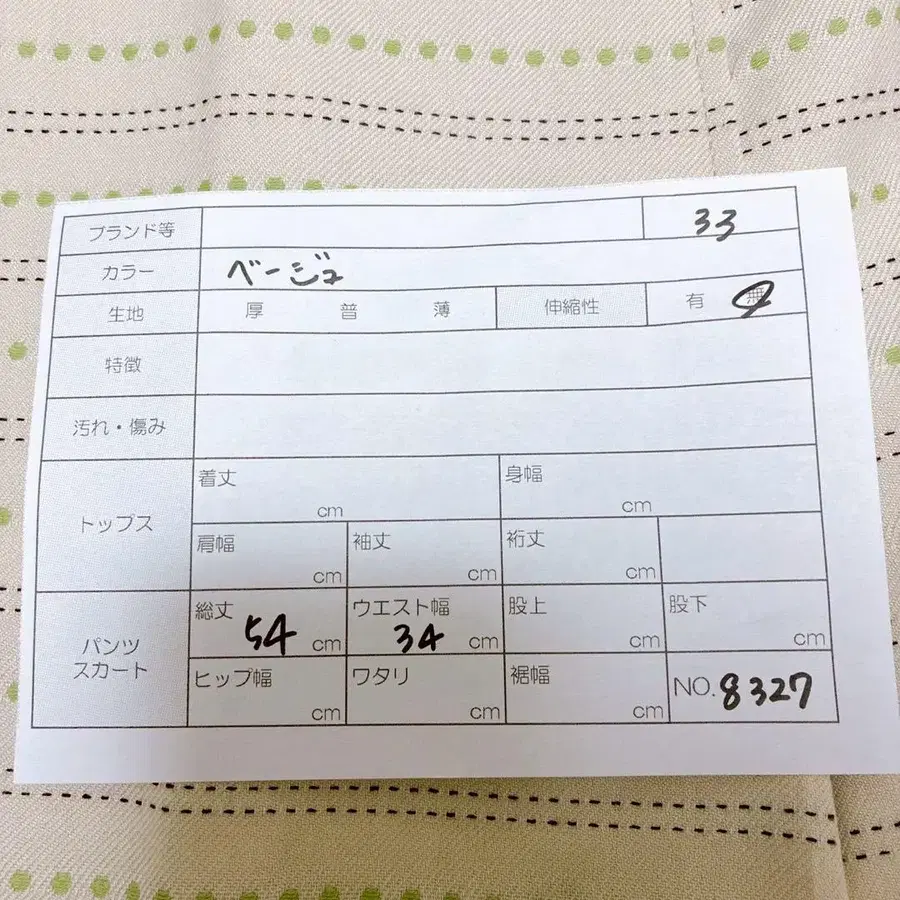 ブランド等 33
カラー ベージュ
生地 厚 普 薄 伸縮性 有 無
特徴
汚れ・傷み
トップス
着丈 cm 身幅 cm
肩幅 cm 袖丈 cm 裄丈 cm
パンツ
スカート
総丈 54 cm ウエスト幅 34 cm 股上 cm 股下 cm
ヒップ幅 cm ワタリ cm 裾幅 cm NO. 8327